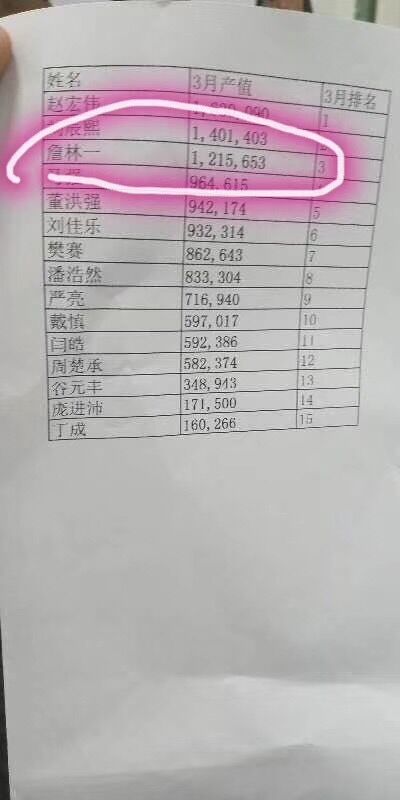 姓名 3月产值 3月排名
赵宏伟 1
辰熙 1,401,403 2
詹林一 1,215,653 3
强 964,615
董洪强 942,174 5
刘佳乐 932,314 6
樊赛 862,643 7
潘浩然 833,304 8
严亮 716,940 9
戴慎 597,017 10
闫皓 592,386 11
周楚承 582,374 12
谷元丰 348,943 13
庞进沛 171,500 14
丁成 160,266 15